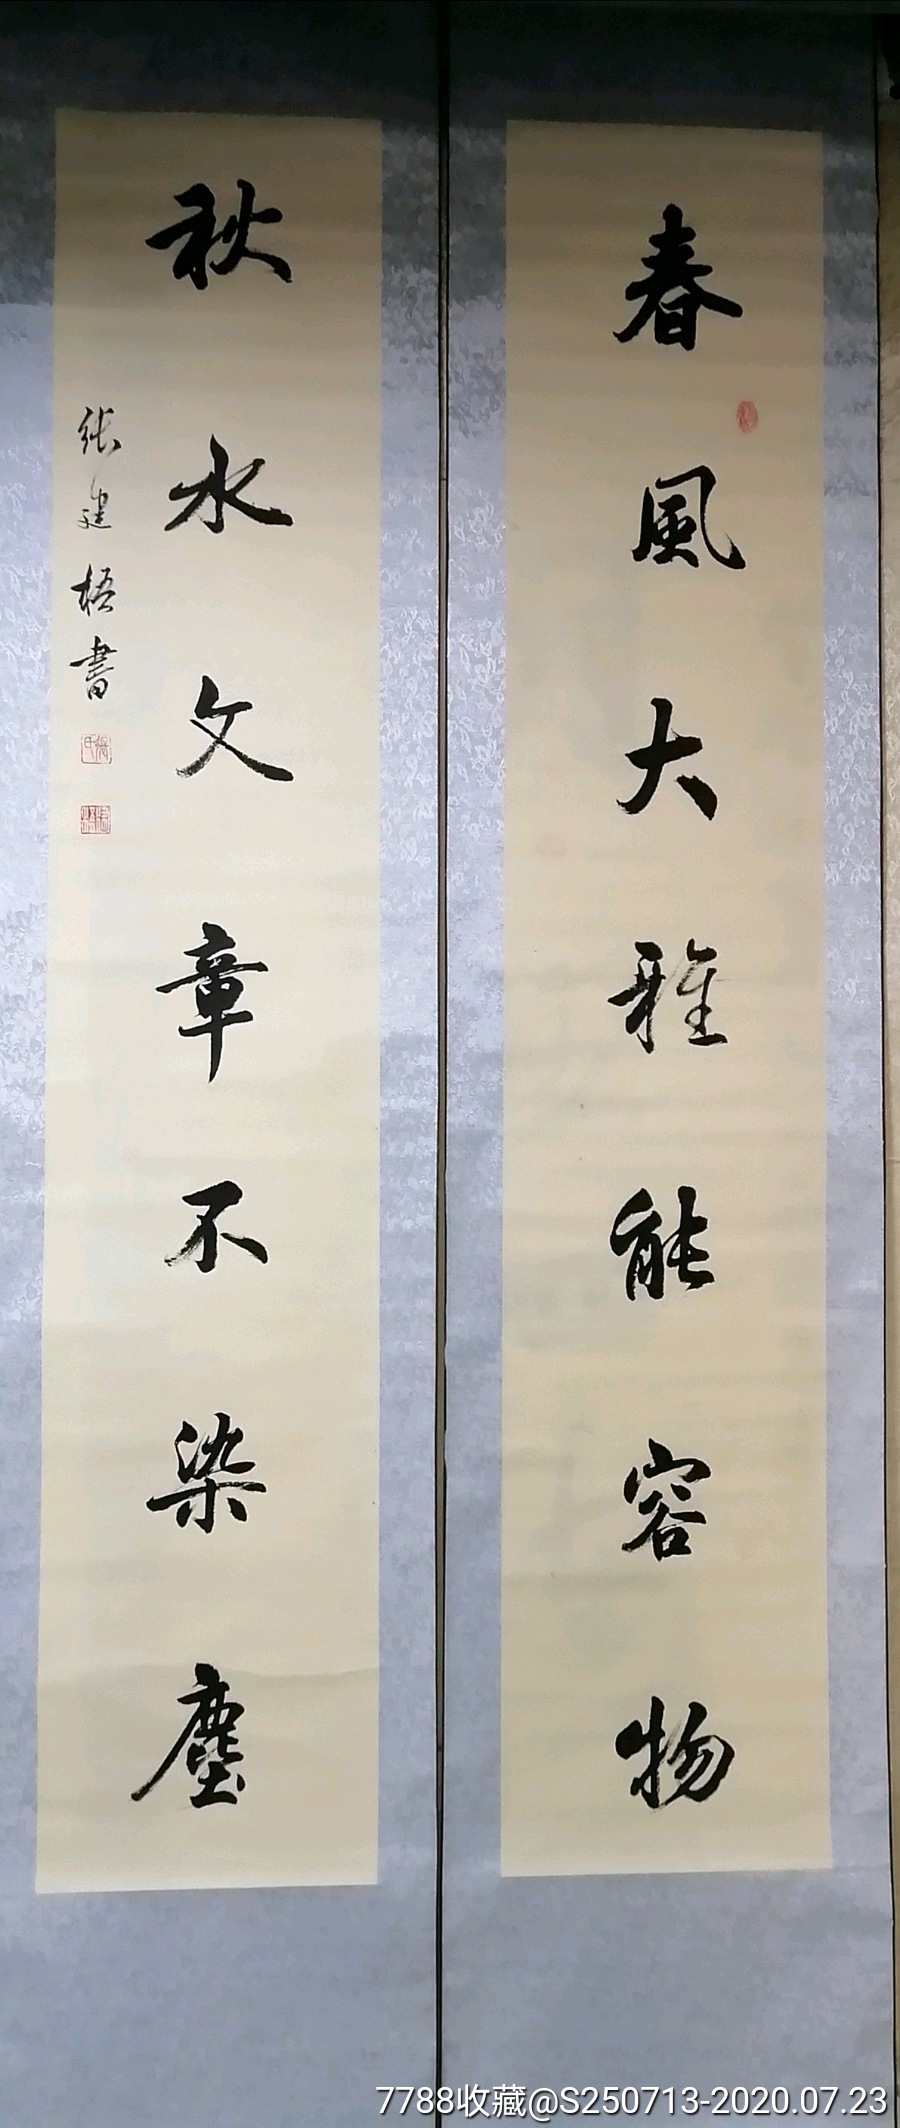 春風大雅能容物
秋水文章不染塵
張建梧書
7788收藏@S250713-2020.07.23